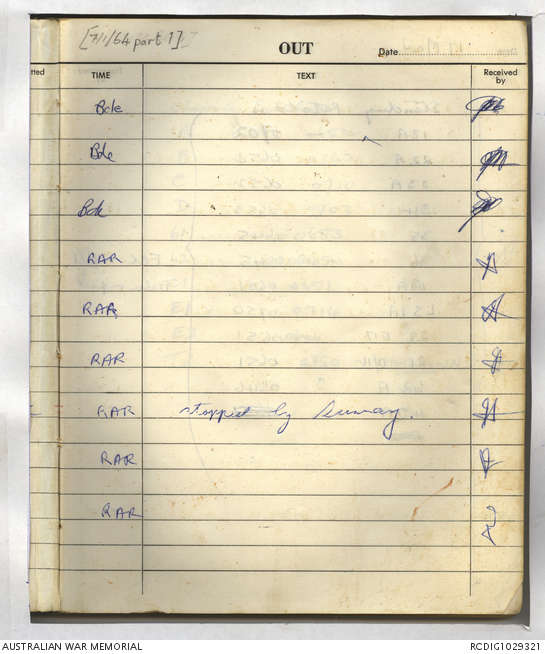 [7/1/64 part 1]
OUT
Date
tted
TIME
TEXT
Received by
Bde
Bde
Bde
RAR
RAR
RAR
RAR stopped by
RAR
RAR
AUSTRALIAN WAR MEMORIAL
RCDIG1029321